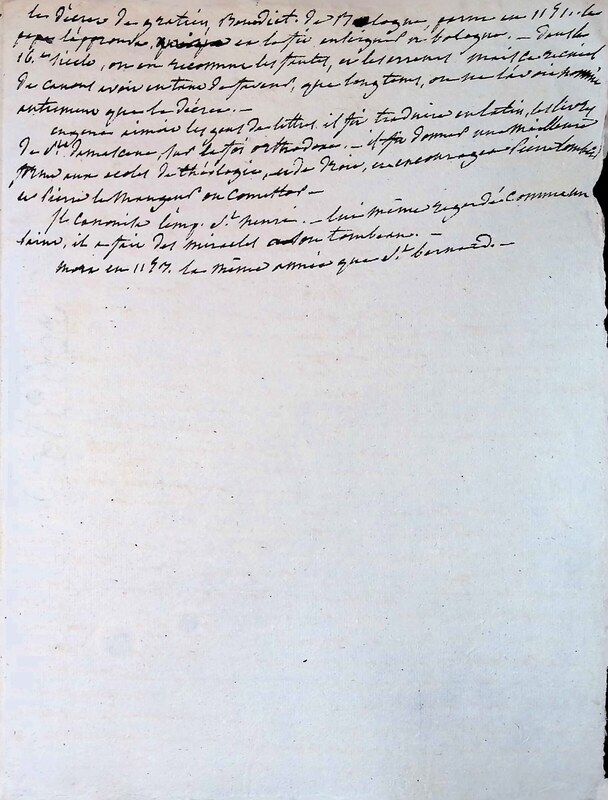 le décret de gratien, Benedict. de Bologne, parue en 1151. le
pape l'approuva, et le fit enseigner à bologne. — dans le
16.e siècle, on en reconnut les fautes, et les erreurs. mais ce recueil
de canons avoit eu tant de faveur, que longtems, on ne l'avoit nommé
autrement que le décret. —
eugene aimoit les gens de lettres. il fit traduire en latin, les livres
de St. damascene, sur la foi orthodoxe. — il fit donner une meilleure
forme aux ecoles de théologie, et de droit, en encourageant Pierre Lombard,
et Pierre le Mangeur ou Comestor. —
Il canonisa l'emp. St. henri. — lui même regardé comme un
saint, il a fait des miracles à son tombeau. —
mort en 1153. la même année que St. bernard. —